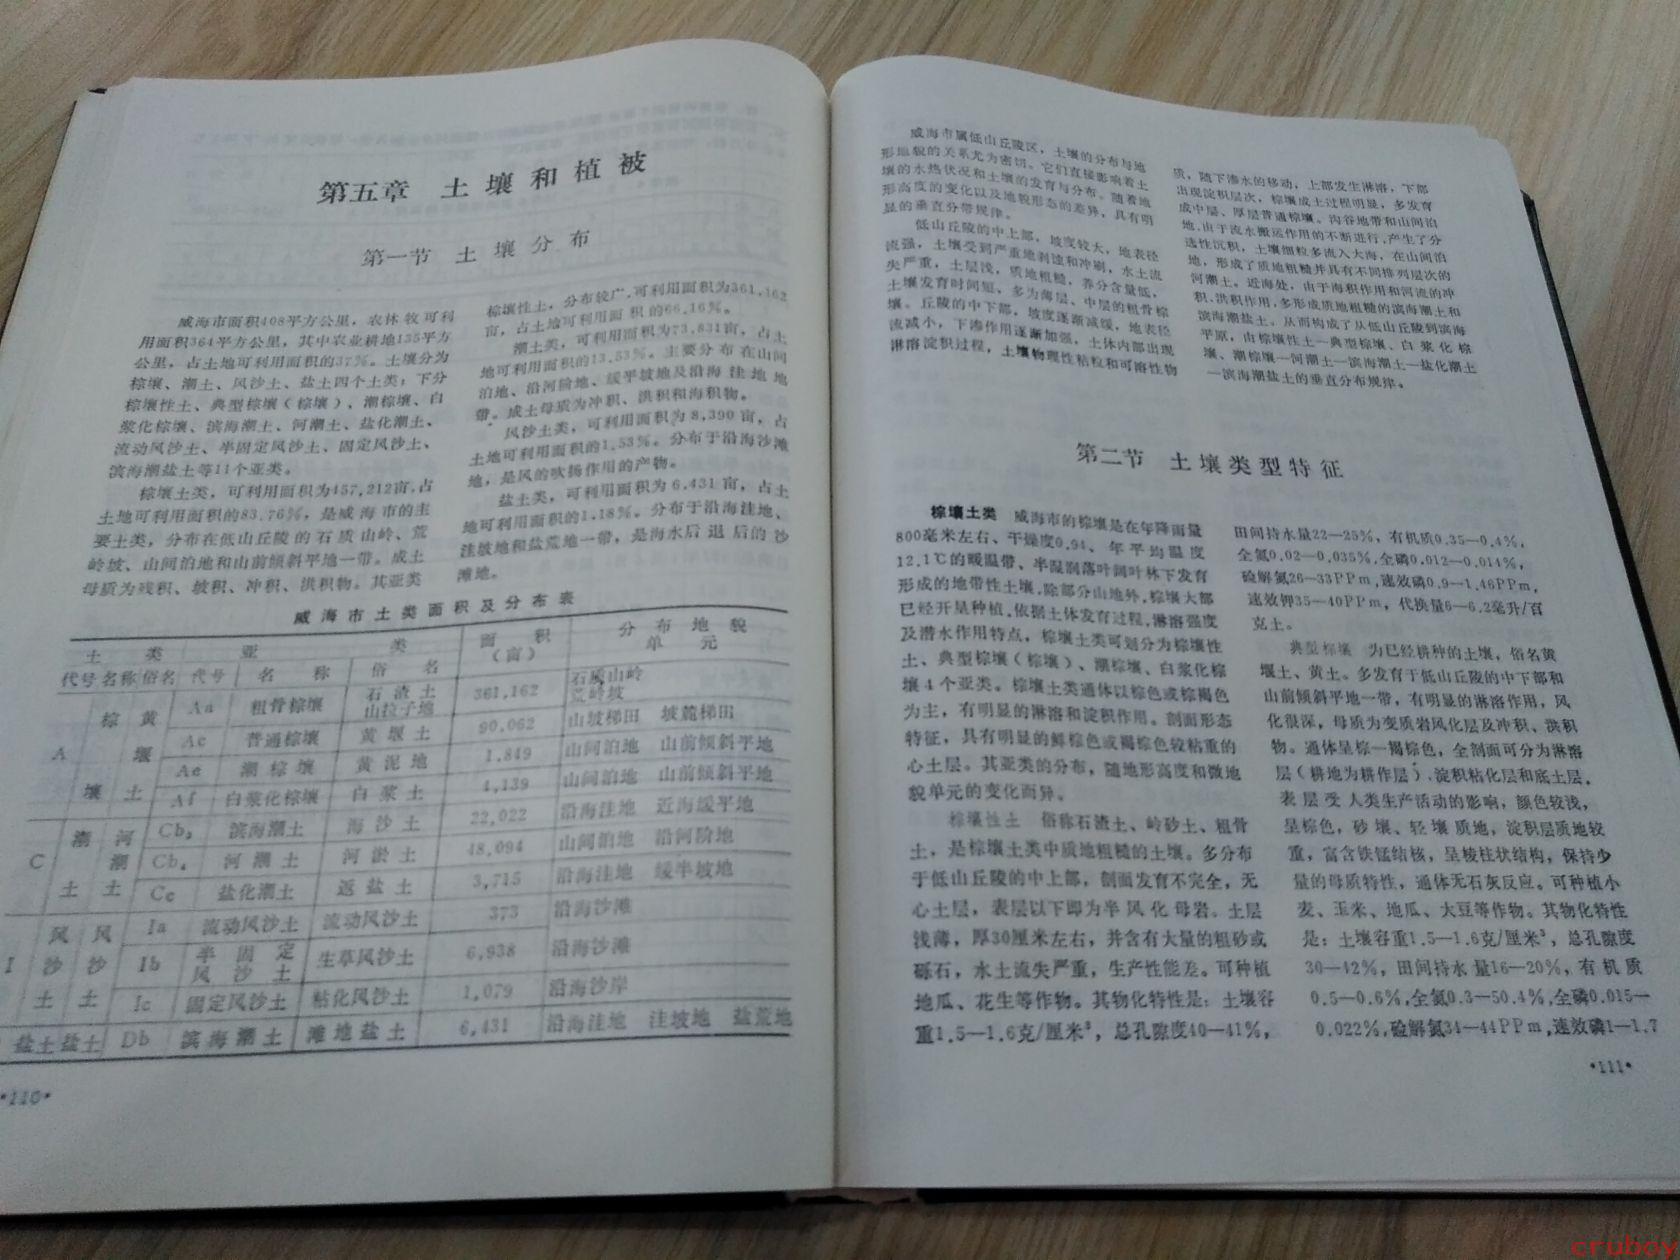 第五章 土壤和植被
第一节 土壤分布
威海市面积408平方公里，农林牧可利
用面积364平方公里，其中农业耕地135平方
公里，占土地可利用面积的37%。土壤分为
棕壤、潮土、风沙土、盐土四个土类；下分
棕壤性土、典型棕壤（棕壤）、潮棕壤、白
浆化棕壤、滨海潮土、河潮土、盐化潮土、
流动风沙土、半固定风沙土、固定风沙土、
滨海潮盐土等11个亚类。
棕壤土类，可利用面积为457,212亩，占
土地可利用面积的83.76%，是威海市的主
要土类，分布在低山丘陵的石质山岭、荒
岭坡、山间泊地和山前倾斜平地一带。成土
母质为残积、坡积、冲积、洪积物。其亚类
棕壤性土，分布较广，可利用面积为361,162
亩，占土地可利用面积的66.16%。
潮土类，可利用面积为73,831亩，占土
地可利用面积的13.53%。主要分布在山间
泊地、沿河阶地、缓平坡地及沿海洼地地
带。成土母质为冲积、洪积和海积物。
风沙土类，可利用面积为8,390亩，占
土地可利用面积的1.53%。分布于沿海沙滩
地，是风的吹扬作用的产物。
盐土类，可利用面积为6,431亩，占土
地可利用面积的1.18%。分布于沿海洼地、
洼坡地和盐荒地一带，是海水后退后的沙
滩地。
威海市土类面积及分布表
土类 亚类 面积（亩） 分布地貌单元
代号 名称 俗名 代号 名称 俗名
A 棕壤 黄堰土 Aa 粗骨棕壤 石渣土 山拉子地 361,162 石质山岭 荒岭坡
Ac 普通棕壤 黄堰土 90,062 山坡梯田 坡麓梯田
Ae 潮棕壤 黄泥地 1,849 山间泊地 山前倾斜平地
Af 白浆化棕壤 白浆土 4,139 山间泊地 山前倾斜平地
C 潮土 河潮土 Cb₃ 滨海潮土 海沙土 22,022 沿海洼地 近海缓平地
Cb₄ 河潮土 河淤土 48,094 山间泊地 沿河阶地
Ce 盐化潮土 返盐土 3,715 沿海洼地 缓半坡地
I 风沙土 风沙土 Ia 流动风沙土 流动风沙土 373 沿海沙滩
Ib 半固定风沙土 生草风沙土 6,938 沿海沙滩
Ic 固定风沙土 粘化风沙土 1,079 沿海沙岸
盐土 盐土 Db 滨海潮土 滩地盐土 6,431 沿海洼地 洼坡地 盐荒地
•110•
威海市属低山丘陵区，土壤的分布与地
形地貌的关系尤为密切。它们直接影响着土
壤的水热状况和土壤的发育与分布。随着地
形高度的变化以及地貌形态的差异，具有明
显的垂直分带规律。
低山丘陵的中上部，坡度较大，地表径
流强，土壤受到严重地剥蚀和冲刷，水土流
失严重，土层浅，质地粗糙，养分含量低，
土壤发育时间短，多为薄层、中层的粗骨棕
壤。丘陵的中下部，坡度逐渐减缓，地表径
流减小，下渗作用逐渐加强，土体内部出现
淋溶淀积过程，土壤物理性粘粒和可溶性物
质，随下渗水的移动，上部发生淋溶，下部
出现淀积层次，棕壤成土过程明显，多发育
成中层、厚层普通棕壤。沟谷地带和山间泊
地，由于流水搬运作用的不断进行，产生了分
选性沉积，土壤细粒多流入大海，在山间泊
地，形成了质地粗糙并具有不同排列层次的
河潮土。近海处，由于海积作用和河流的冲
积、洪积作用，多形成质地粗糙的滨海潮土和
滨海潮盐土。从而构成了从低山丘陵到滨海
平原，由棕壤性土—典型棕壤、白浆化棕
壤、潮棕壤—河潮土—滨海潮土—盐化潮土
—滨海潮盐土的垂直分布规律。
第二节 土壤类型特征
棕壤土类 威海市的棕壤是在年降雨量
800毫米左右、干燥度0.94、年平均温度
12.1℃的暖温带、半湿润落叶阔叶林下发育
形成的地带性土壤，除部分山地外，棕壤大部
已经开垦种植，依据土体发育过程，淋溶强度
及潜水作用特点，棕壤土类可划分为棕壤性
土、典型棕壤（棕壤）、潮棕壤、白浆化棕
壤4个亚类。棕壤土类通体以棕色或棕褐色
为主，有明显的淋溶和淀积作用。剖面形态
特征，具有明显的鲜棕色或褐棕色较粘重的
心土层。其亚类的分布，随地形高度和微地
貌单元的变化而异。
棕壤性土 俗称石渣土、岭砂土、粗骨
土，是棕壤土类中质地粗糙的土壤。多分布
于低山丘陵的中上部，剖面发育不完全，无
心土层，表层以下即为半风化母岩。土层
浅薄，厚30厘米左右，并含有大量的粗砂或
砾石，水土流失严重，生产性能差。可种植
地瓜、花生等作物。其物化特性是：土壤容
重1.5—1.6克/厘米³，总孔隙度40—41%，
田间持水量22—25%，有机质0.35—0.4%，
全氮0.02—0.035%，全磷0.012—0.014%，
硷解氮26—33PPm，速效磷0.9—1.46PPm，
速效钾35—40PPm，代换量6—6.2毫升/百
克土。
典型棕壤 为已经耕种的土壤，俗名黄
堰土、黄土。多发育于低山丘陵的中下部和
山前倾斜平地一带，有明显的淋溶作用，风
化很深，母质为变质岩风化层及冲积、洪积
物。通体呈棕—褐棕色，全剖面可分为淋溶
层（耕地为耕作层）、淀积粘化层和底土层。
表层受人类生产活动的影响，颜色较浅，
呈棕色，砂壤、轻壤质地，淀积层质地较
重，富含铁锰结核，呈棱柱状结构，保持少
量的母质特性，通体无石灰反应。可种植小
麦、玉米、地瓜、大豆等作物。其物化特性
是：土壤容重1.5—1.6克/厘米³，总孔隙度
30—42%，田间持水量16—20%，有机质
0.5—0.6%，全氮0.3—50.4%，全磷0.015—
0.022%，硷解氮34—44PPm，速效磷1—1.7
•111•
cruboy